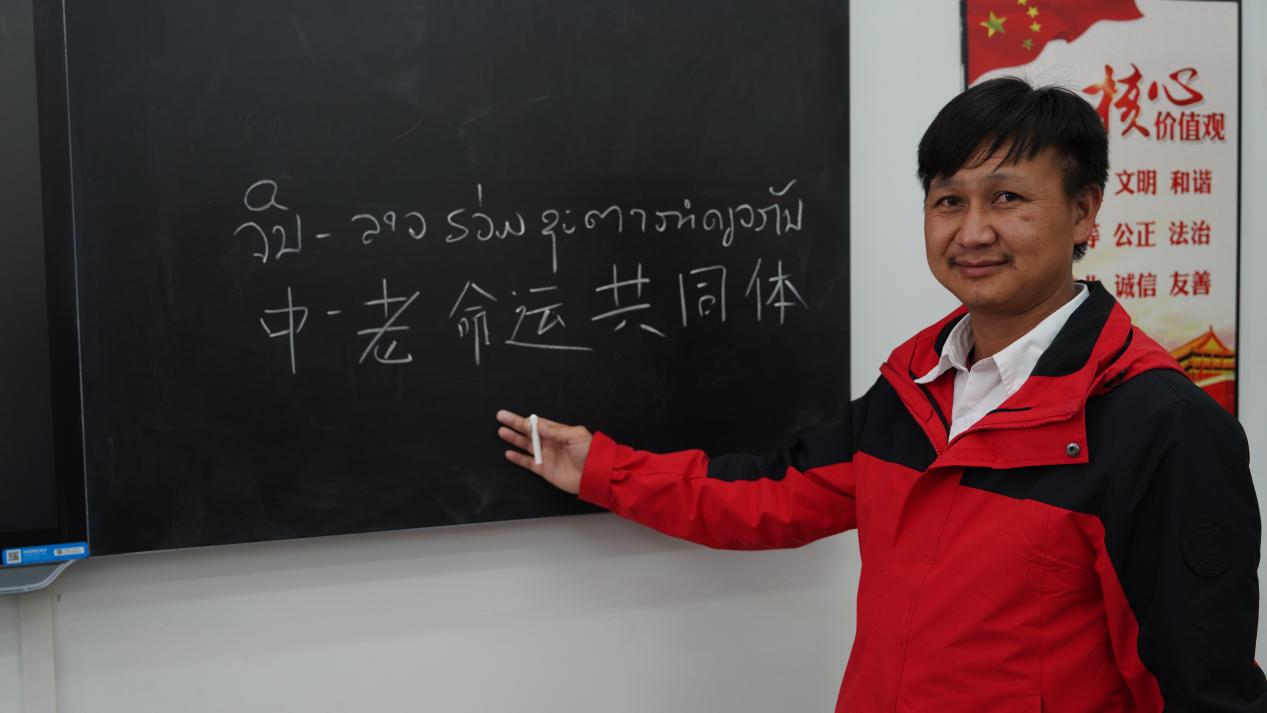 ຈີນ - ລາວ ຮ່ວມ ຊະຕາກຳດຽວກັນ
中 - 老 命运共同体
核心
价值观
文明 和谐
公正 法治
诚信 友善